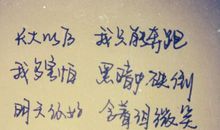 长大以后 我只能奔跑
我多害怕 黑暗中跌倒
明天你好 含着泪微笑